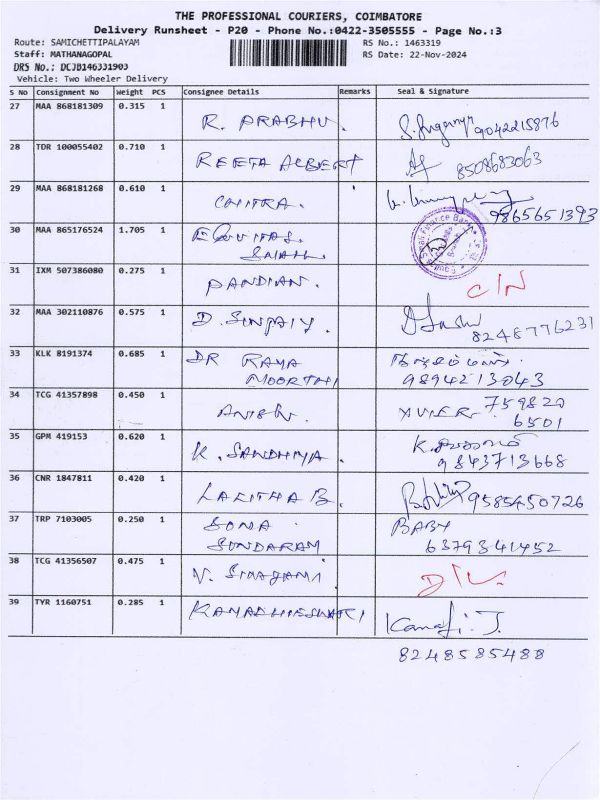 THE PROFESSIONAL COURIERS, COIMBATORE
Delivery Runsheet - P20 - Phone No.:0422-3505555 - Page No.:3
Route: SAMICHETTIPALAYAM RS No.: 1463319
Staff: MATHANAGOPAL RS Date: 22-Nov-2024
DRS No.: DCJB146331903
Vehicle: Two Wheeler Delivery
S No Consignment No Weight PCS Consignee Details Remarks Seal & Signature
27 MAA 868181309 0.315 1
R. PRABHU. 9042215876
28 TDR 100055402 0.710 1
REETA ALBERT 8508683063
29 MAA 868181268 0.610 1
CHITRA. 9865651393
30 MAA 865176524 1.705 1
Small Finance Bank
31 IXM 507386080 0.275 1
PANDIAN. C/N
32 MAA 302110876 0.575 1
D. 8248776231
33 KLK 8191374 0.685 1
DR RAMA
MOORTHI 9894213043
34 TCG 41357898 0.450 1
XVIER 759820
6501
35 GPM 419153 0.620 1
K. SANDHYA. 9843713668
36 CNR 1847811 0.420 1
LALITHA B. 9585450726
37 TRP 7103005 0.250 1
SONA BABY
SUNDARAM 6379341452
38 TCG 41356507 0.475 1
V. SIVAGAMI
39 TYR 1160751 0.285 1
8248585488